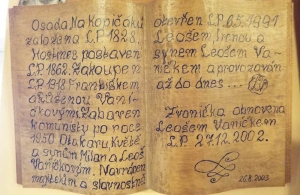 Osada Na Kopičáku
založena L.P. 1828.
Hostinec postaven
L.P. 1862. Zakoupen
L.P. 1912 Františkem
a Luisenou Vaníč-
kovými. Zabaven
komunisty po roce
1950 Otakaru, Květě
a synům Milan a Leoš
Vaníčkovým. Navrácen
majitelům a slavnostně
otevřen L.P. 6.5.1991
Leošem, Irenou a
synem Leošem Va-
níčkem a provozován
až do dnes...
Zvonička obnovena
Leošem Vaníčkem.
L.P. 27.12.2002.
26.8.2003